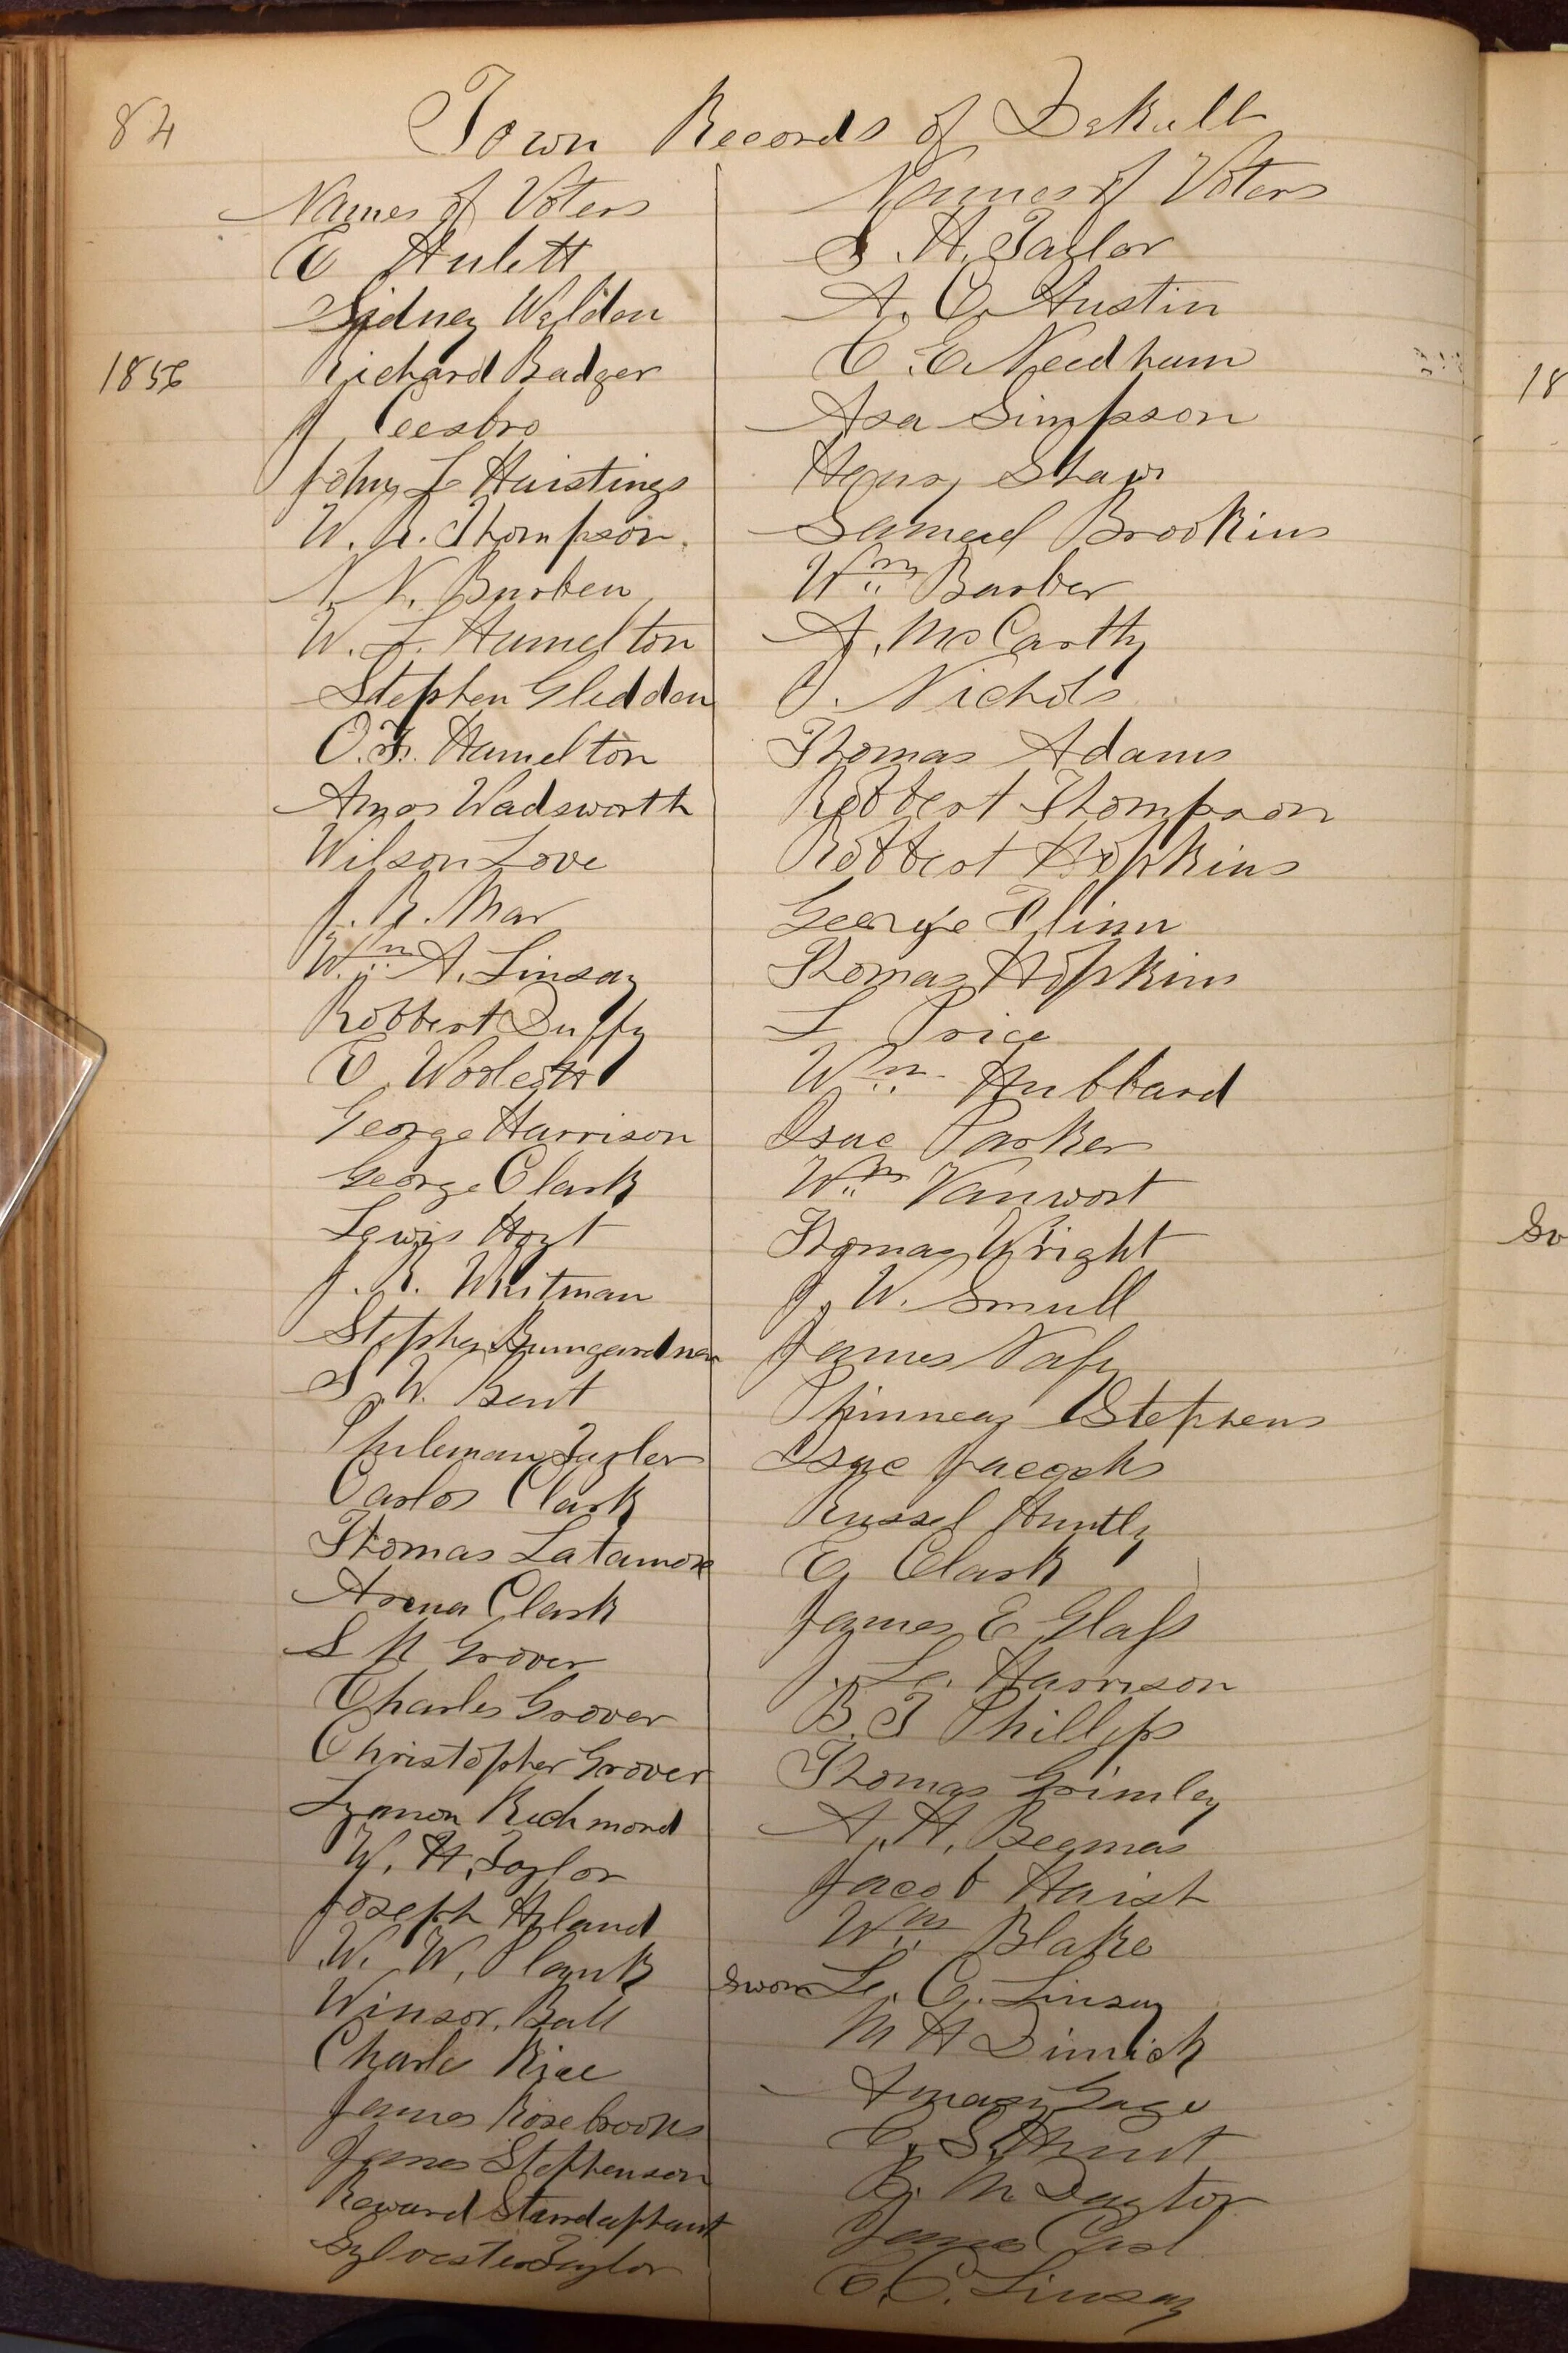 84
Town Records of DeKalb
Names of Voters
E Hulett
Sidney Weldon
1856
Richard Badger
J
John L Haistings
W. R. Thompson.
N. Burben
W. L. Hamelton
Stephen Gleddon
O. F. Hamelton
Amos Wadsworth
Wilson Love
J. R. Mar
Wm A. Linsay
Robbert Duffy
E. Woolcott
George Harrison
George Clark
Lewis Hoyt
J. R. Whitman
Stephen Bumgardner
S. W. Bent
Phileman Taylor
Carlos Clark
Thomas Latamore
Clark
S N Grover
Charles Grover
Christopher Grover
Lyman Richmond
W. H. Taylor
Joseph Hyland
W. W. Plank
Winsor. Ball
Charle Rice
James Rosebrooks
James Stephenson
Reward Standaphant
Sylvester Taylor
Names of Voters
S. H. Taylor
A. C. Austin
C. E. Needham
Asa Simpson
Henry Shaw
Samuel Brookins
Wm Barber
A. McCarthy
J. Nichols
Thomas Adams
Robbert Thompson
Robbert Hopkins
George Flinn
Thomas Hopkins
L Price
Wm Hubbard
Isac Parker
Wm Vanwort
Thomas Wright
J. W. Small
James Nafy
Phinneas Stephens
Isac
Russel Huntly
E. Clark
James E Glass
J. Le. Harrison
B. T Phillips
Thomas Grimley
A. H. Beemas
Jacob Haish
Wm Blake
Sworn Le. C. Linsay
M H Dimick
Amasy Gage
E. S. Hunt
B. M Dayton
James
E. C. Linsay
18